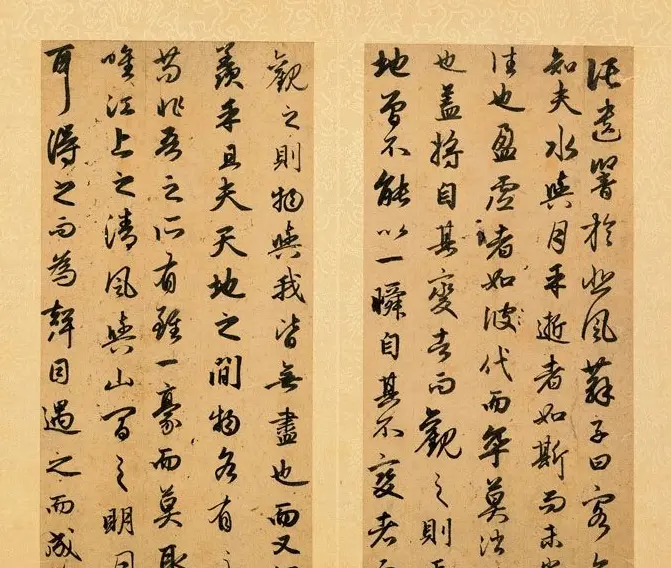 託遺響於悲風蘇子曰客
知夫水與月乎逝者如斯而未
往也盈虛者如彼代而卒莫消
也蓋將自其變者而觀之則
地曾不能以一瞬自其不變者而
觀之則物與我皆無盡也而又
羨乎且夫天地之間物各有
苟非吾之所有雖一豪而莫取
唯江上之清風與山間之明月
耳得之而為聲目遇之而成